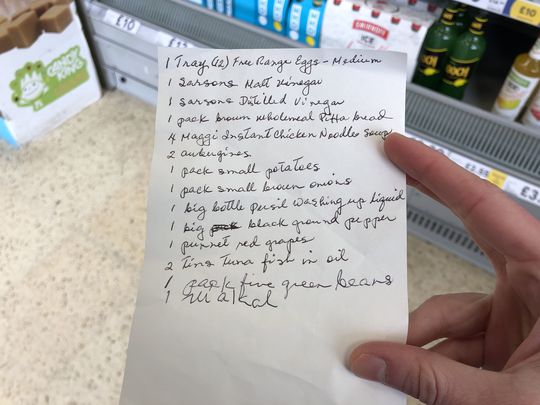 £10
£10
SMIRNOFF
ICE
CANDY
KING
KOCH
1 Tray (12) Free Range Eggs - Medium
1 Sarsons Malt Vinegar
1 Sarsons Distilled Vinegar
1 pack brown wholemeal Pitta bread
4 Maggi Instant Chicken Noodles Soup
2 aubergines
1 pack small potatoes
1 pack small brown onions
1 big bottle Persil Washing up Liquid
1 big black ground pepper
1 punnet red grapes
2 Tins Tuna fish in oil
1 pack fine green beans
1